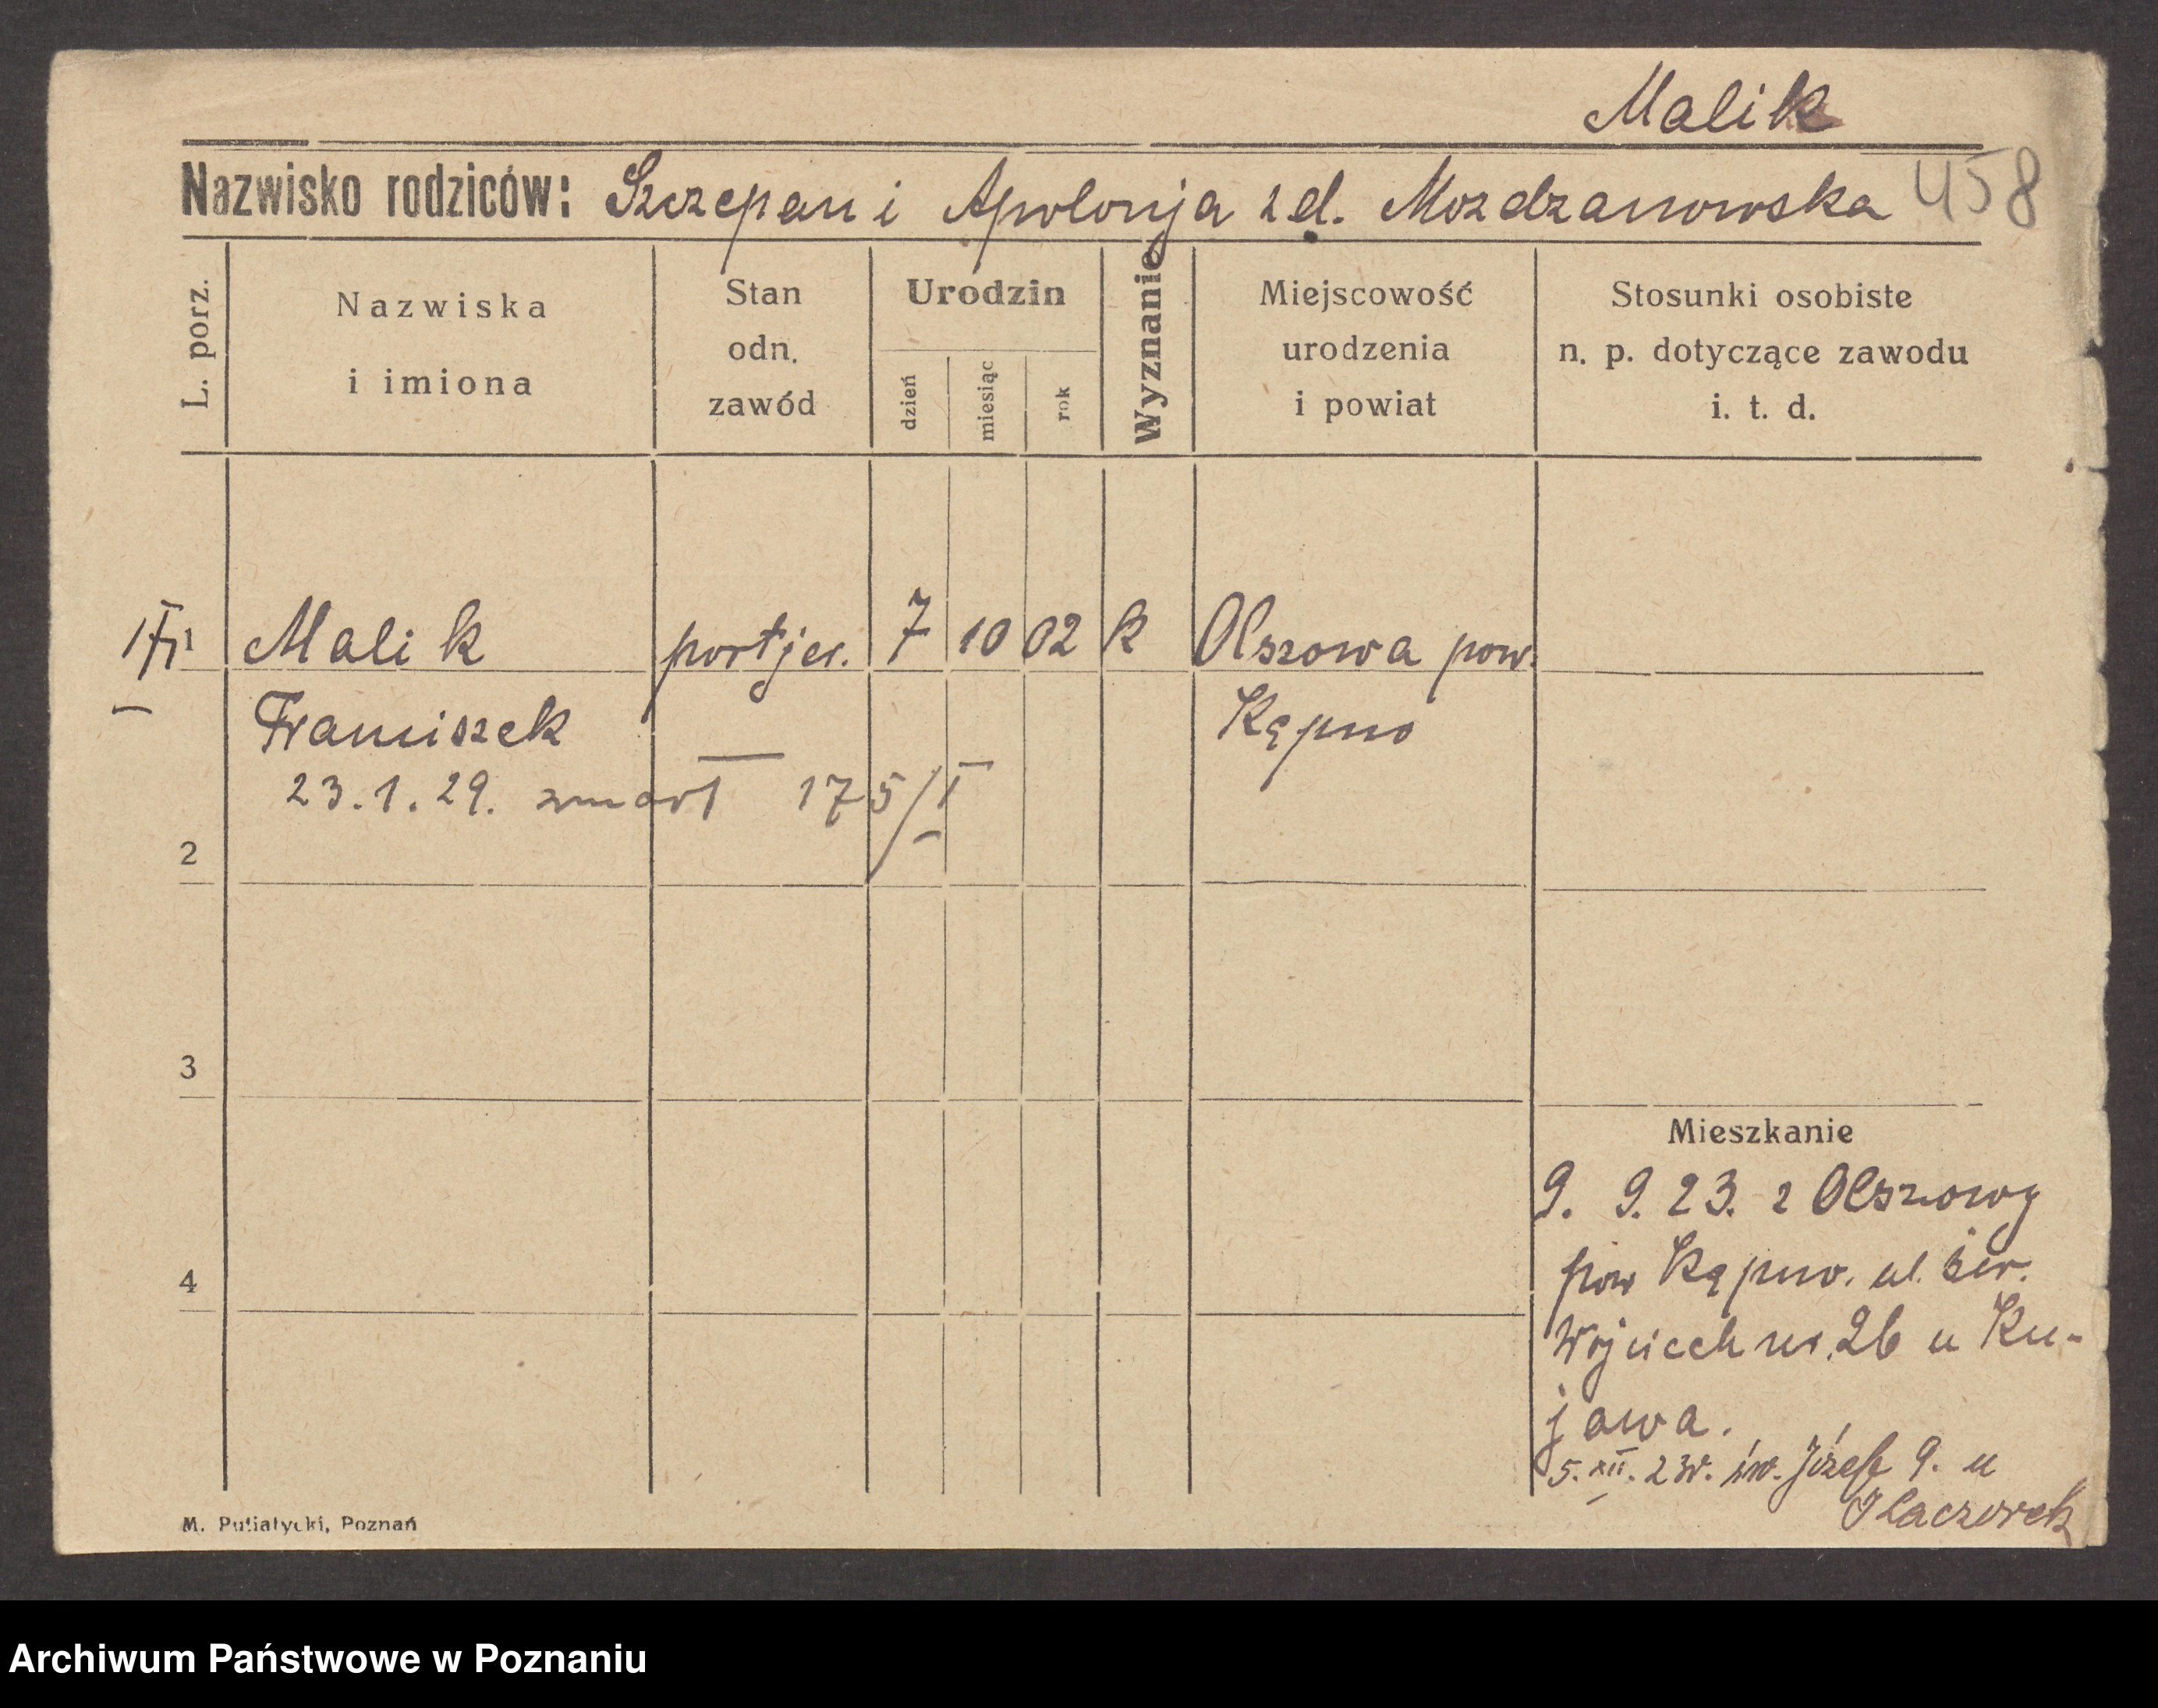 Malik
Nazwisko rodziców: Szczepan i Apolonja z d. Mozdzanowska 458
L. porz.
Nazwiska
i imiona
Stan
odn.
zawód
Urodzin
dzień
miesiąc
rok
Wyznanie
Miejscowość
urodzenia
i powiat
Stosunki osobiste
n. p. dotyczące zawodu
i. t. d.
Malik portjer. 7 10 02 k Olszowa pow.
Franciszek Kępno
23. 1. 29. zmarł 175/I
2
3
4
Mieszkanie
9. 9. 23. z Olszowy
pow Kępno. ul. św.
Wojciech nr. 26 u Ku-
jawa.
5. XII. 23r. św. Józef 9. u
M. Putiatycki, Poznań
Archiwum Państwowe w Poznaniu